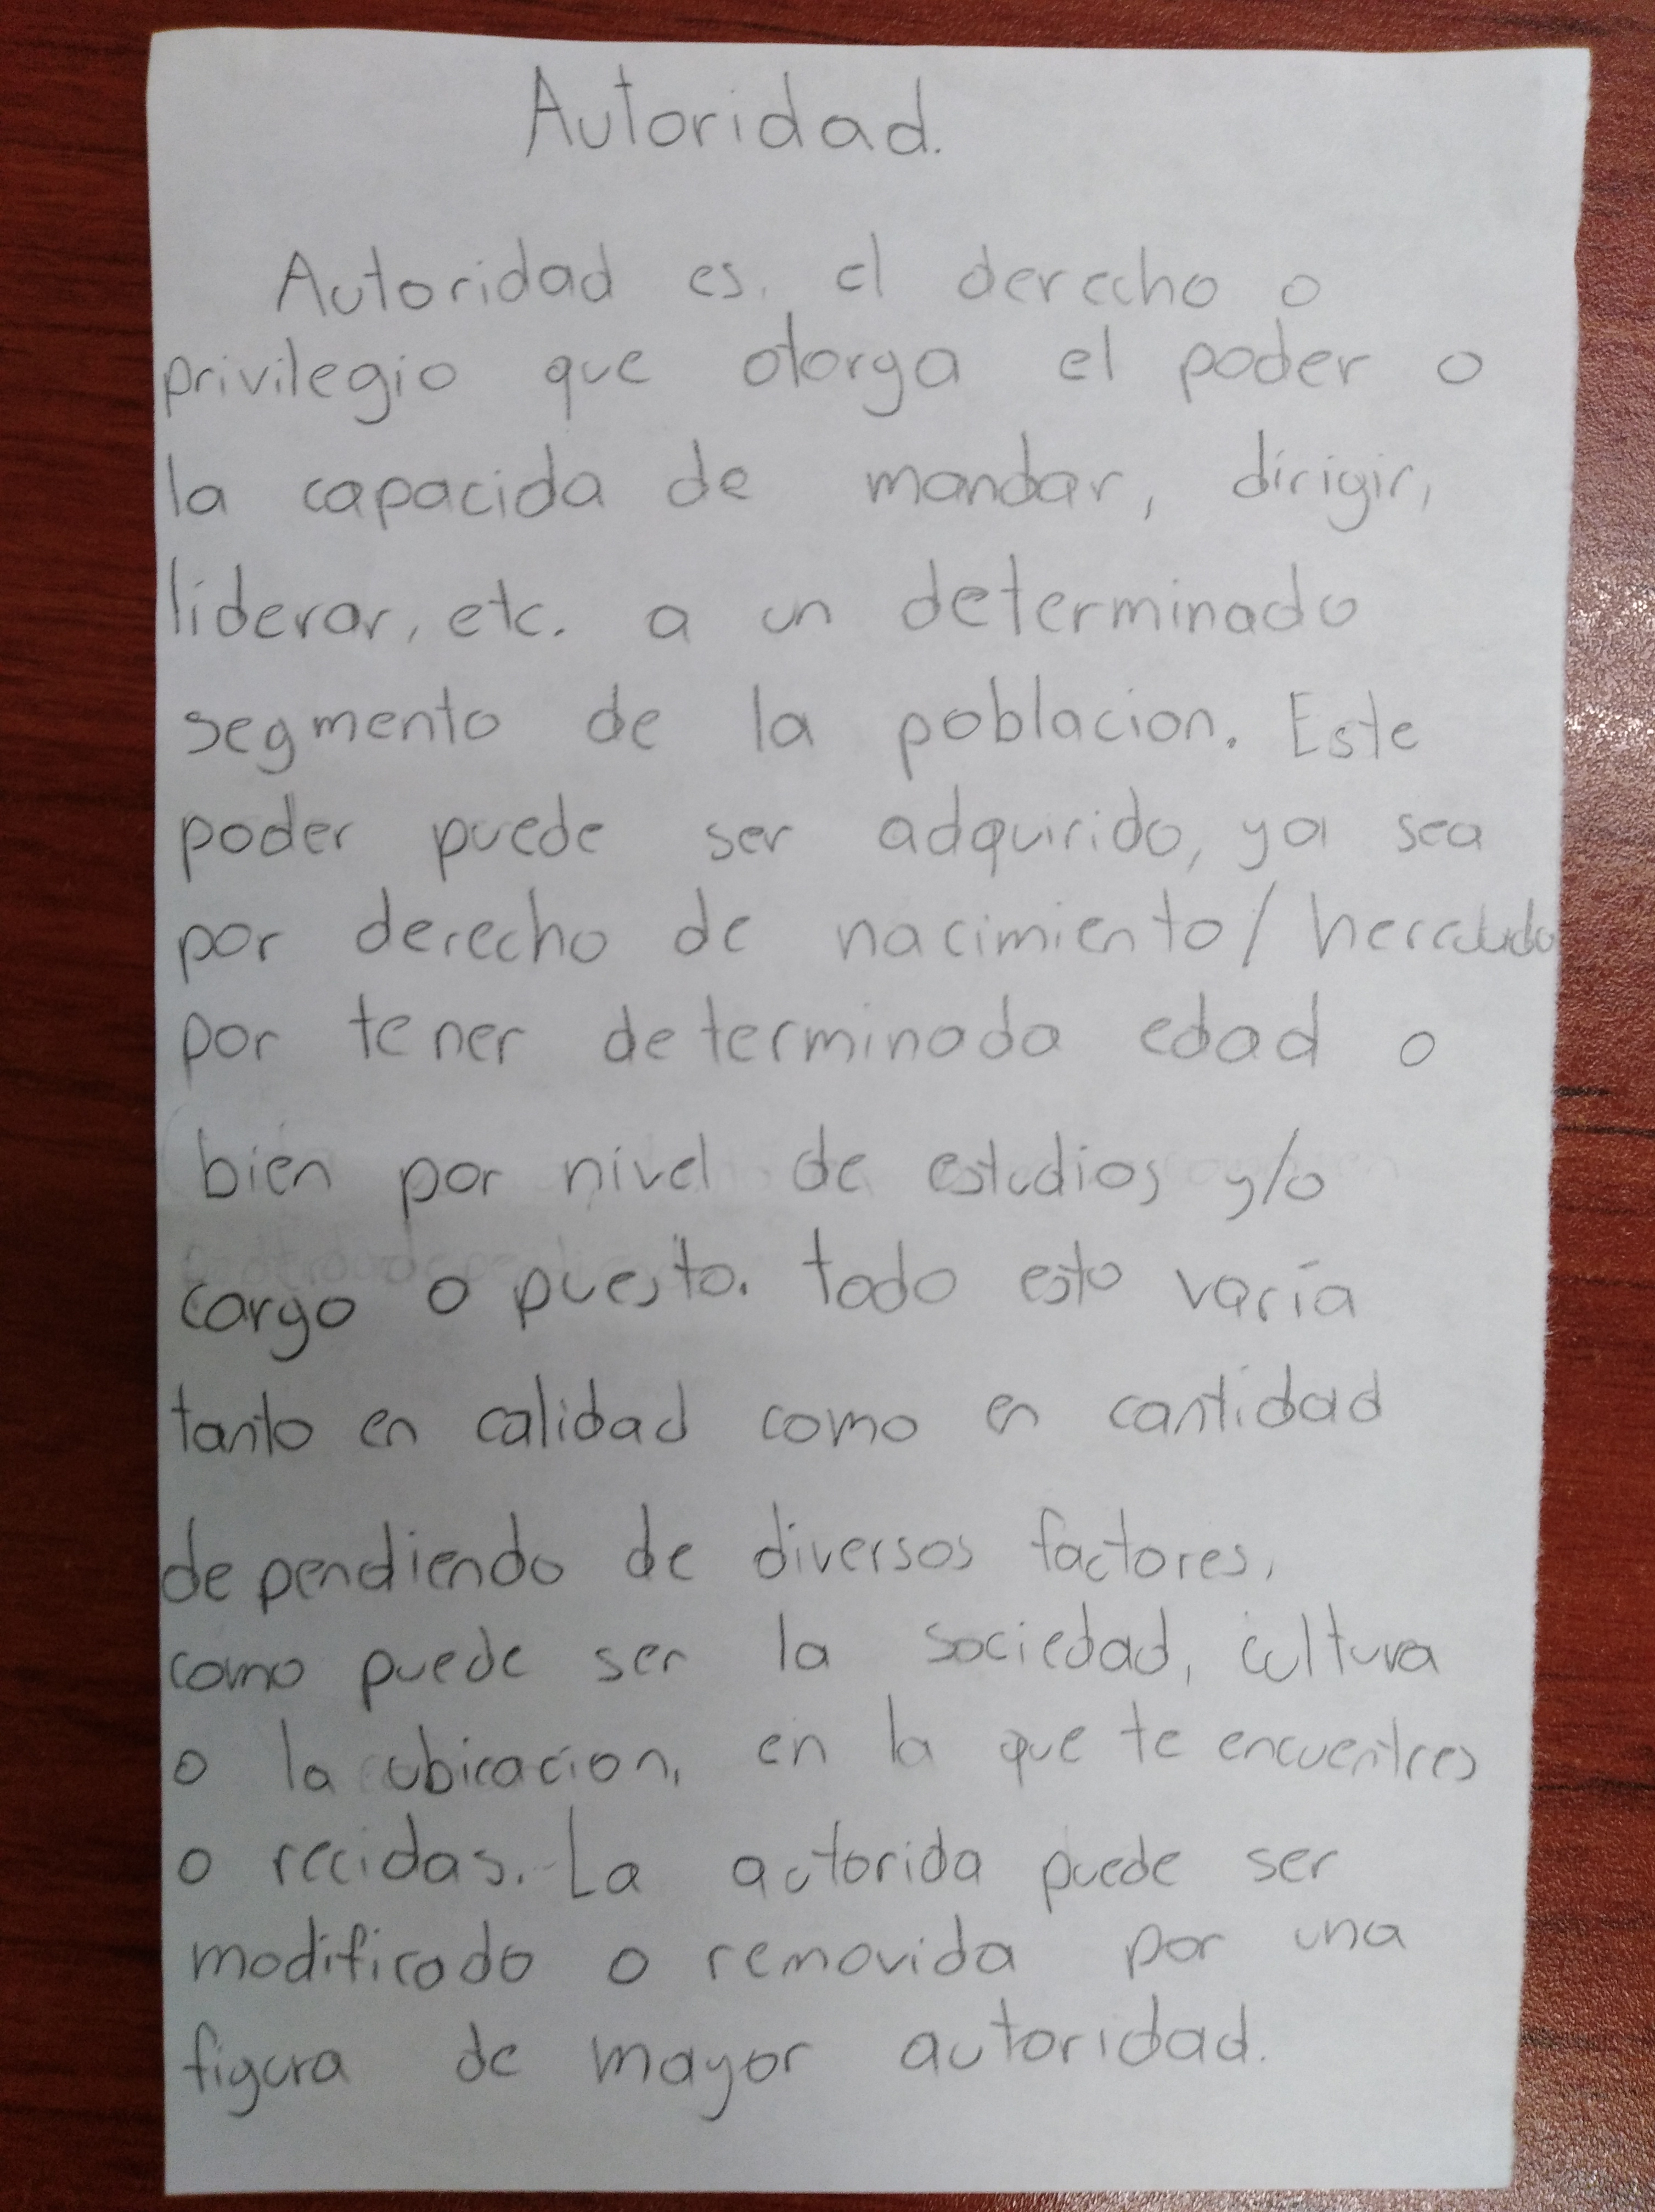 Autoridad.
Autoridad es, el derecho o
privilegio que otorga el poder o
la capacida de mandar, dirigir,
liderar, etc. a un determinado
segmento de la poblacion. Este
poder puede ser adquirido, ya sea
por derecho de nacimiento/
por tener determinada edad o
bien por nivel de estudios y/o
cargo o puesto. todo esto varía
tanto en calidad como en cantidad
dependiendo de diversos factores,
como puede ser la sociedad, cultura
o la ubicacion, en la que te encuentres
o recidas. La autorida puede ser
modificado o removida por una
figura de mayor autoridad.